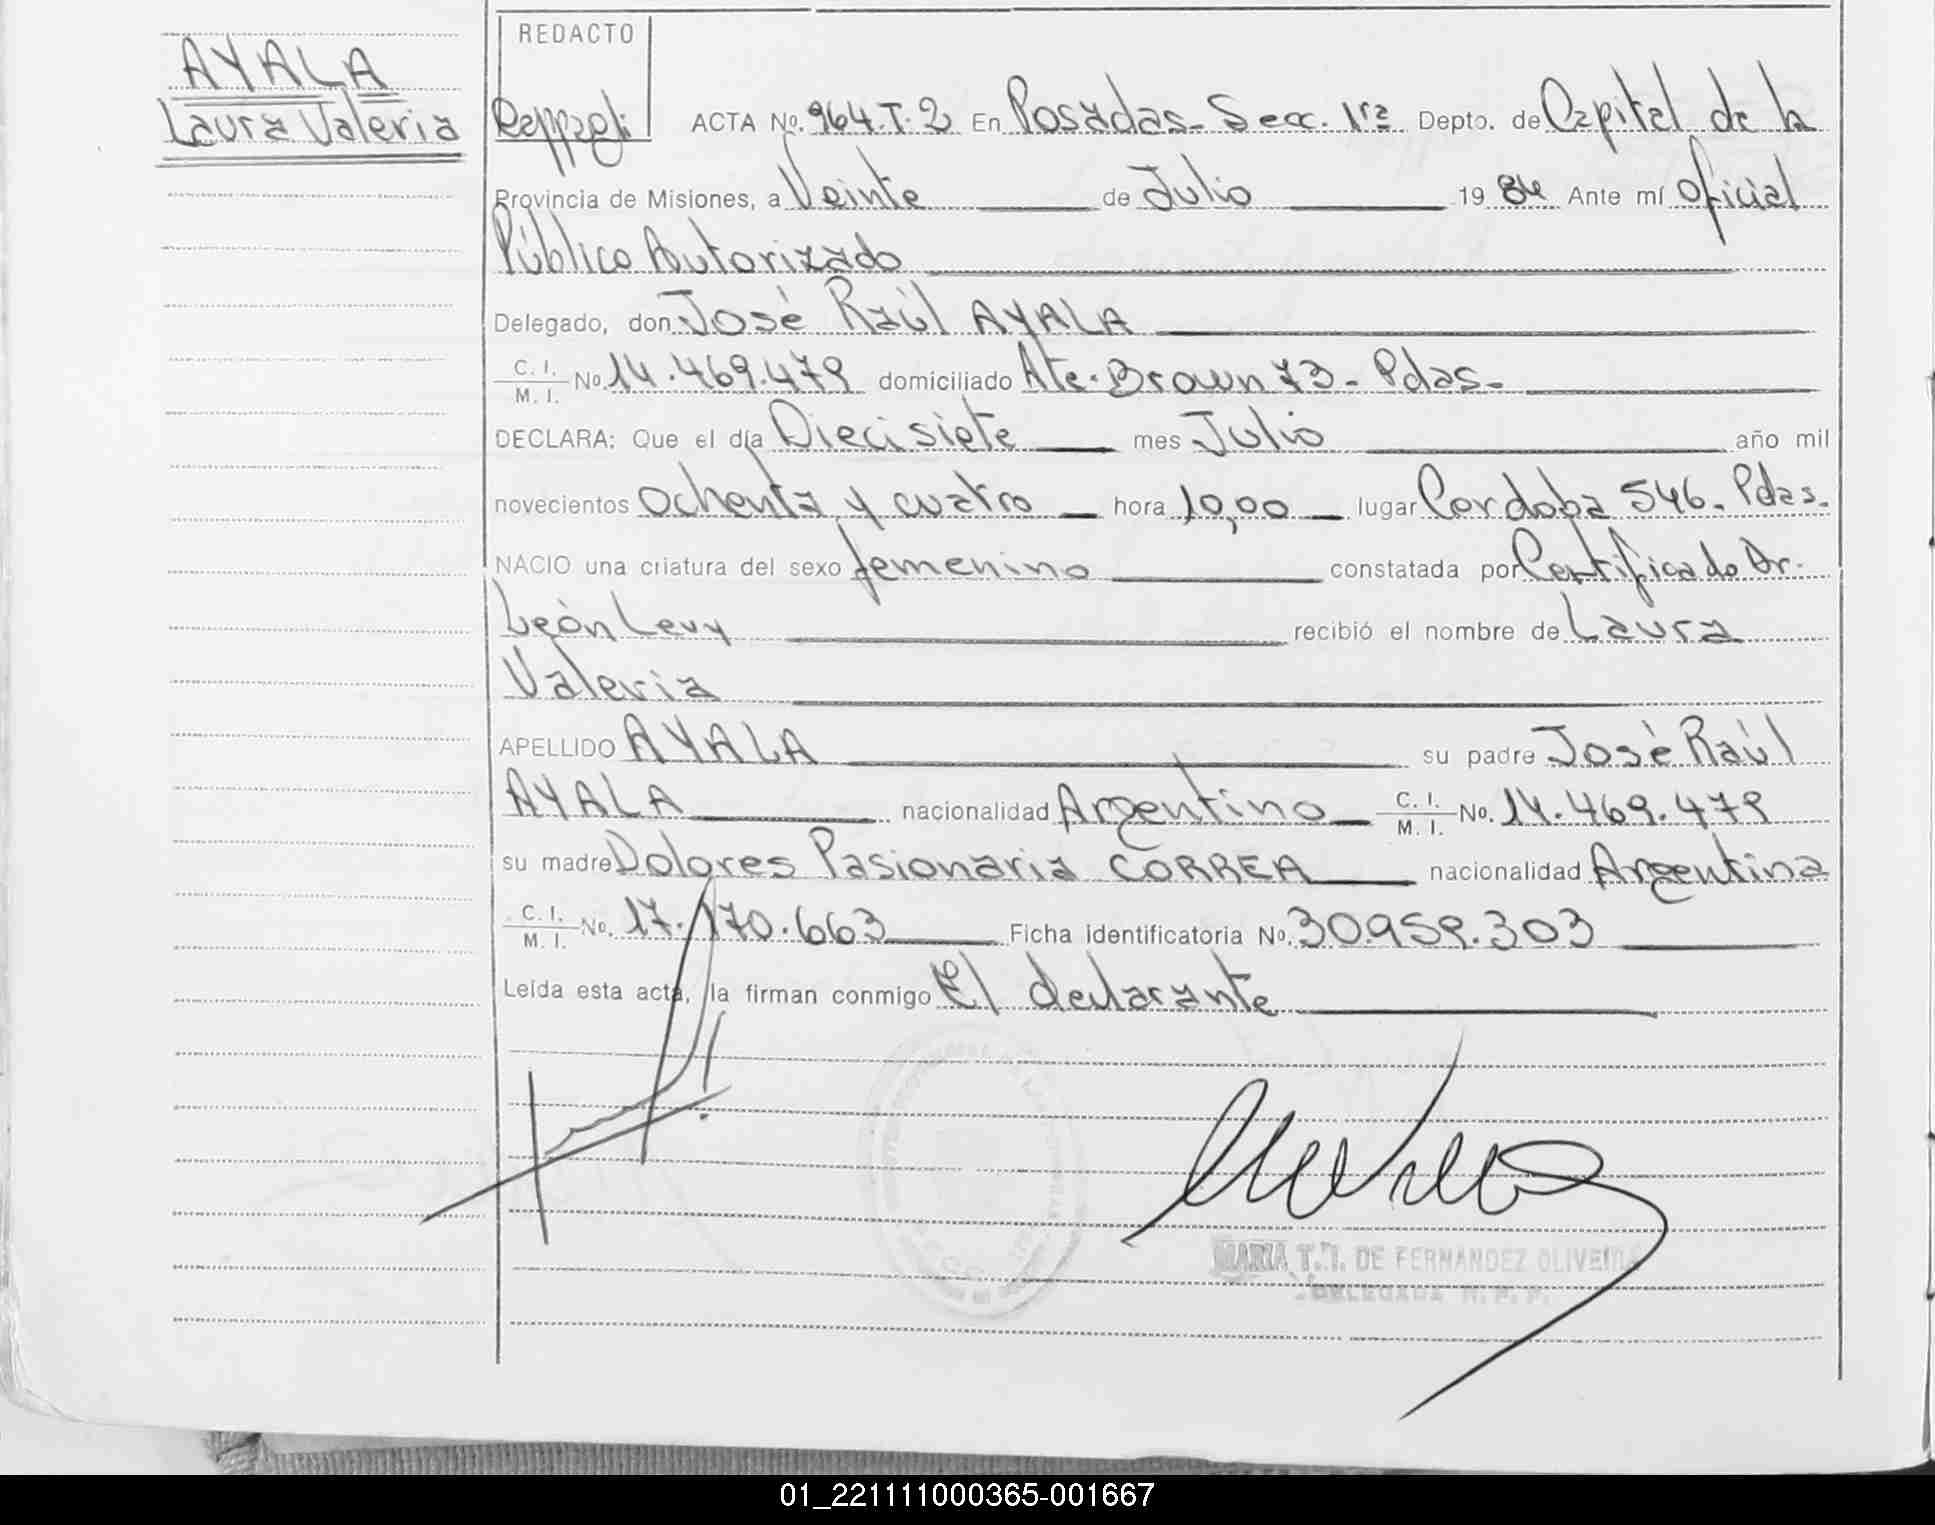 AYALA
Laura Valeria
REDACTO
ACTA No. 964.T.2 En Posadas- Secc. 1ra Depto. de Capital de la
Provincia de Misiones, a Veinte de Julio 1984 Ante mí Oficial
Público Autorizado
Delegado, don José Raúl AYALA
C. I.
M. I. No. 14.469.479 domiciliado Ate. Brown 73- Pdas-
DECLARA: Que el día Diecisiete mes Julio año mil
novecientos ochenta y cuatro hora 10,00 lugar Cordoba 546. Pdas.
NACIO una criatura del sexo femenino constatada por Certificado Dr.
León Levy recibió el nombre de Laura
Valeria
APELLIDO AYALA su padre José Raúl
AYALA nacionalidad Argentino C. I. M. I. No. 14.469.479
su madre Dolores Pasionaria CORREA nacionalidad Argentina
C. I.
M. I. No. 17.170.663 Ficha identificatoria No. 30.959.303
Leída esta acta, la firman conmigo El declarante
MARIA T. I. DE FERNANDEZ OLIVEIRA
DELEGADA R. P. P.
01_221111000365-001667